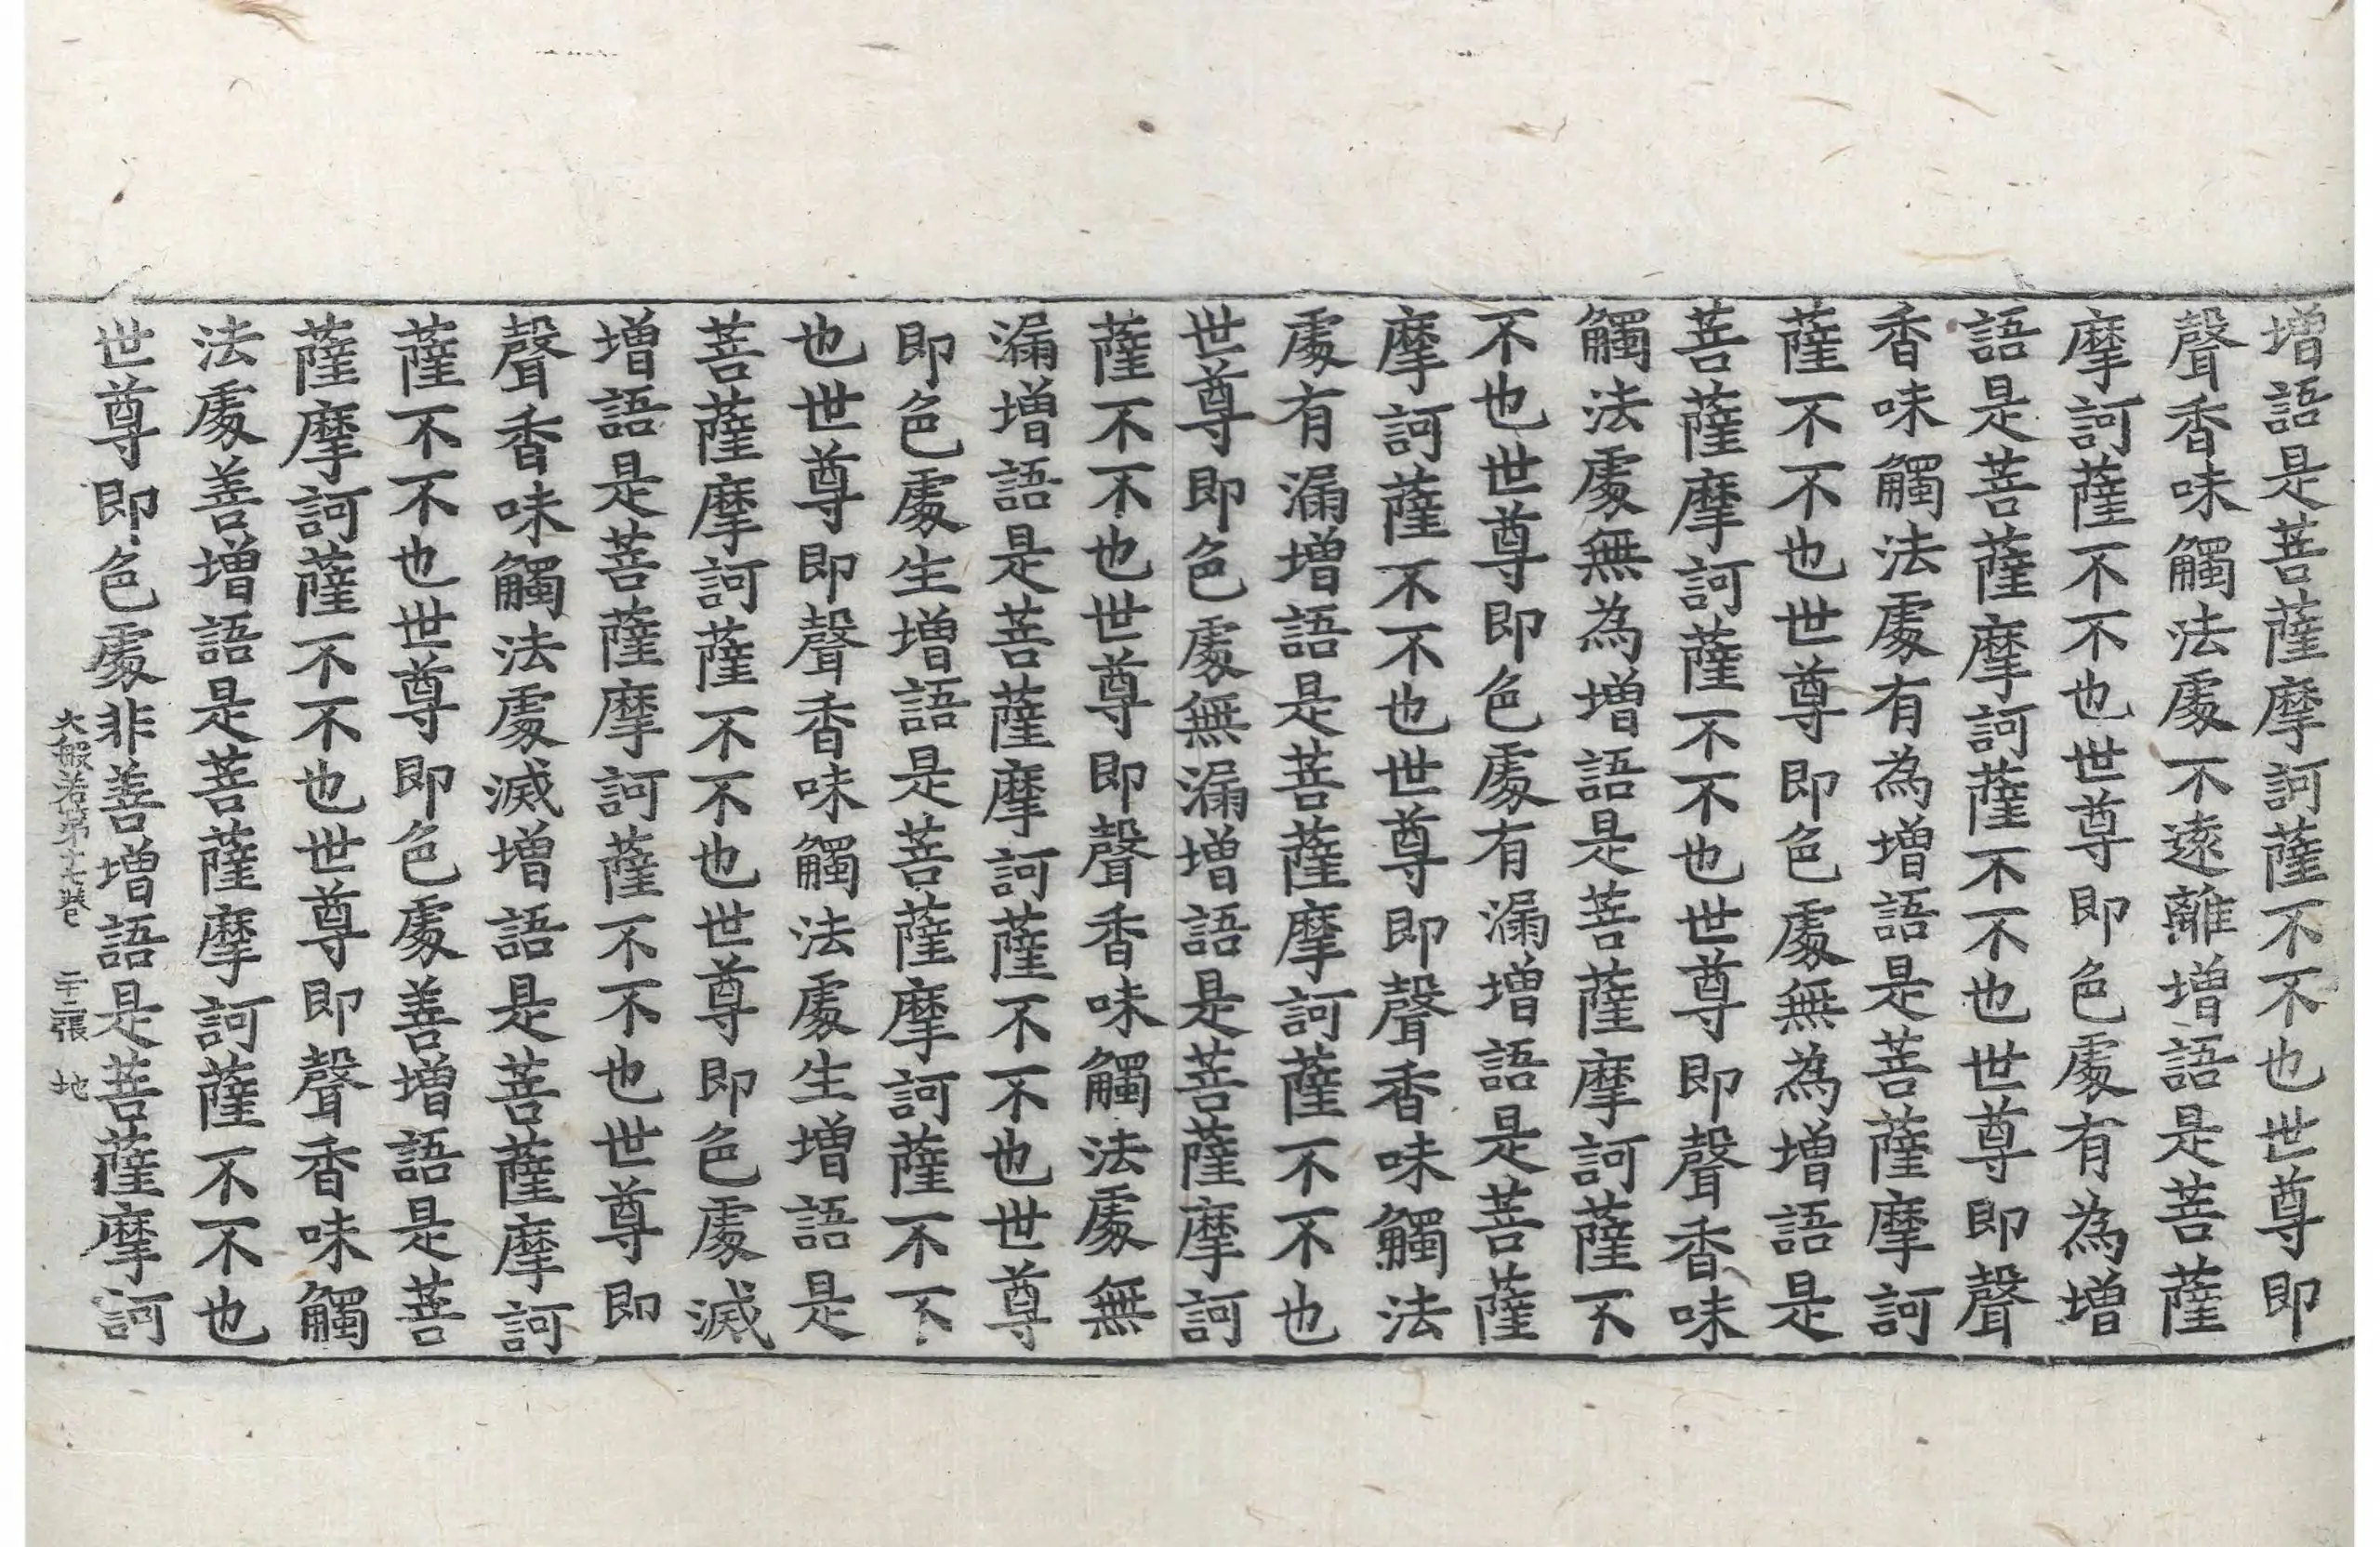 增語是菩薩摩訶薩不不也世尊即
聲香味觸法處不遠離增語是菩薩
摩訶薩不不也世尊即色處有為增
語是菩薩摩訶薩不不也世尊即聲
香味觸法處有為增語是菩薩摩訶
薩不不也世尊即色處無為增語是
菩薩摩訶薩不不也世尊即聲香味
觸法處無為增語是菩薩摩訶薩不
不也世尊即色處有漏增語是菩薩
摩訶薩不不也世尊即聲香味觸法
處有漏增語是菩薩摩訶薩不不也
世尊即色處無漏增語是菩薩摩訶
薩不不也世尊即聲香味觸法處無
漏增語是菩薩摩訶薩不不也世尊
即色處生增語是菩薩摩訶薩不不
也世尊即聲香味觸法處生增語是
菩薩摩訶薩不不也世尊即色處滅
增語是菩薩摩訶薩不不也世尊即
聲香味觸法處滅增語是菩薩摩訶
薩不不也世尊即色處善增語是菩
薩摩訶薩不不也世尊即聲香味觸
法處善增語是菩薩摩訶薩不不也
世尊即色處非善增語是菩薩摩訶
大般若第十七卷 二十二張 地